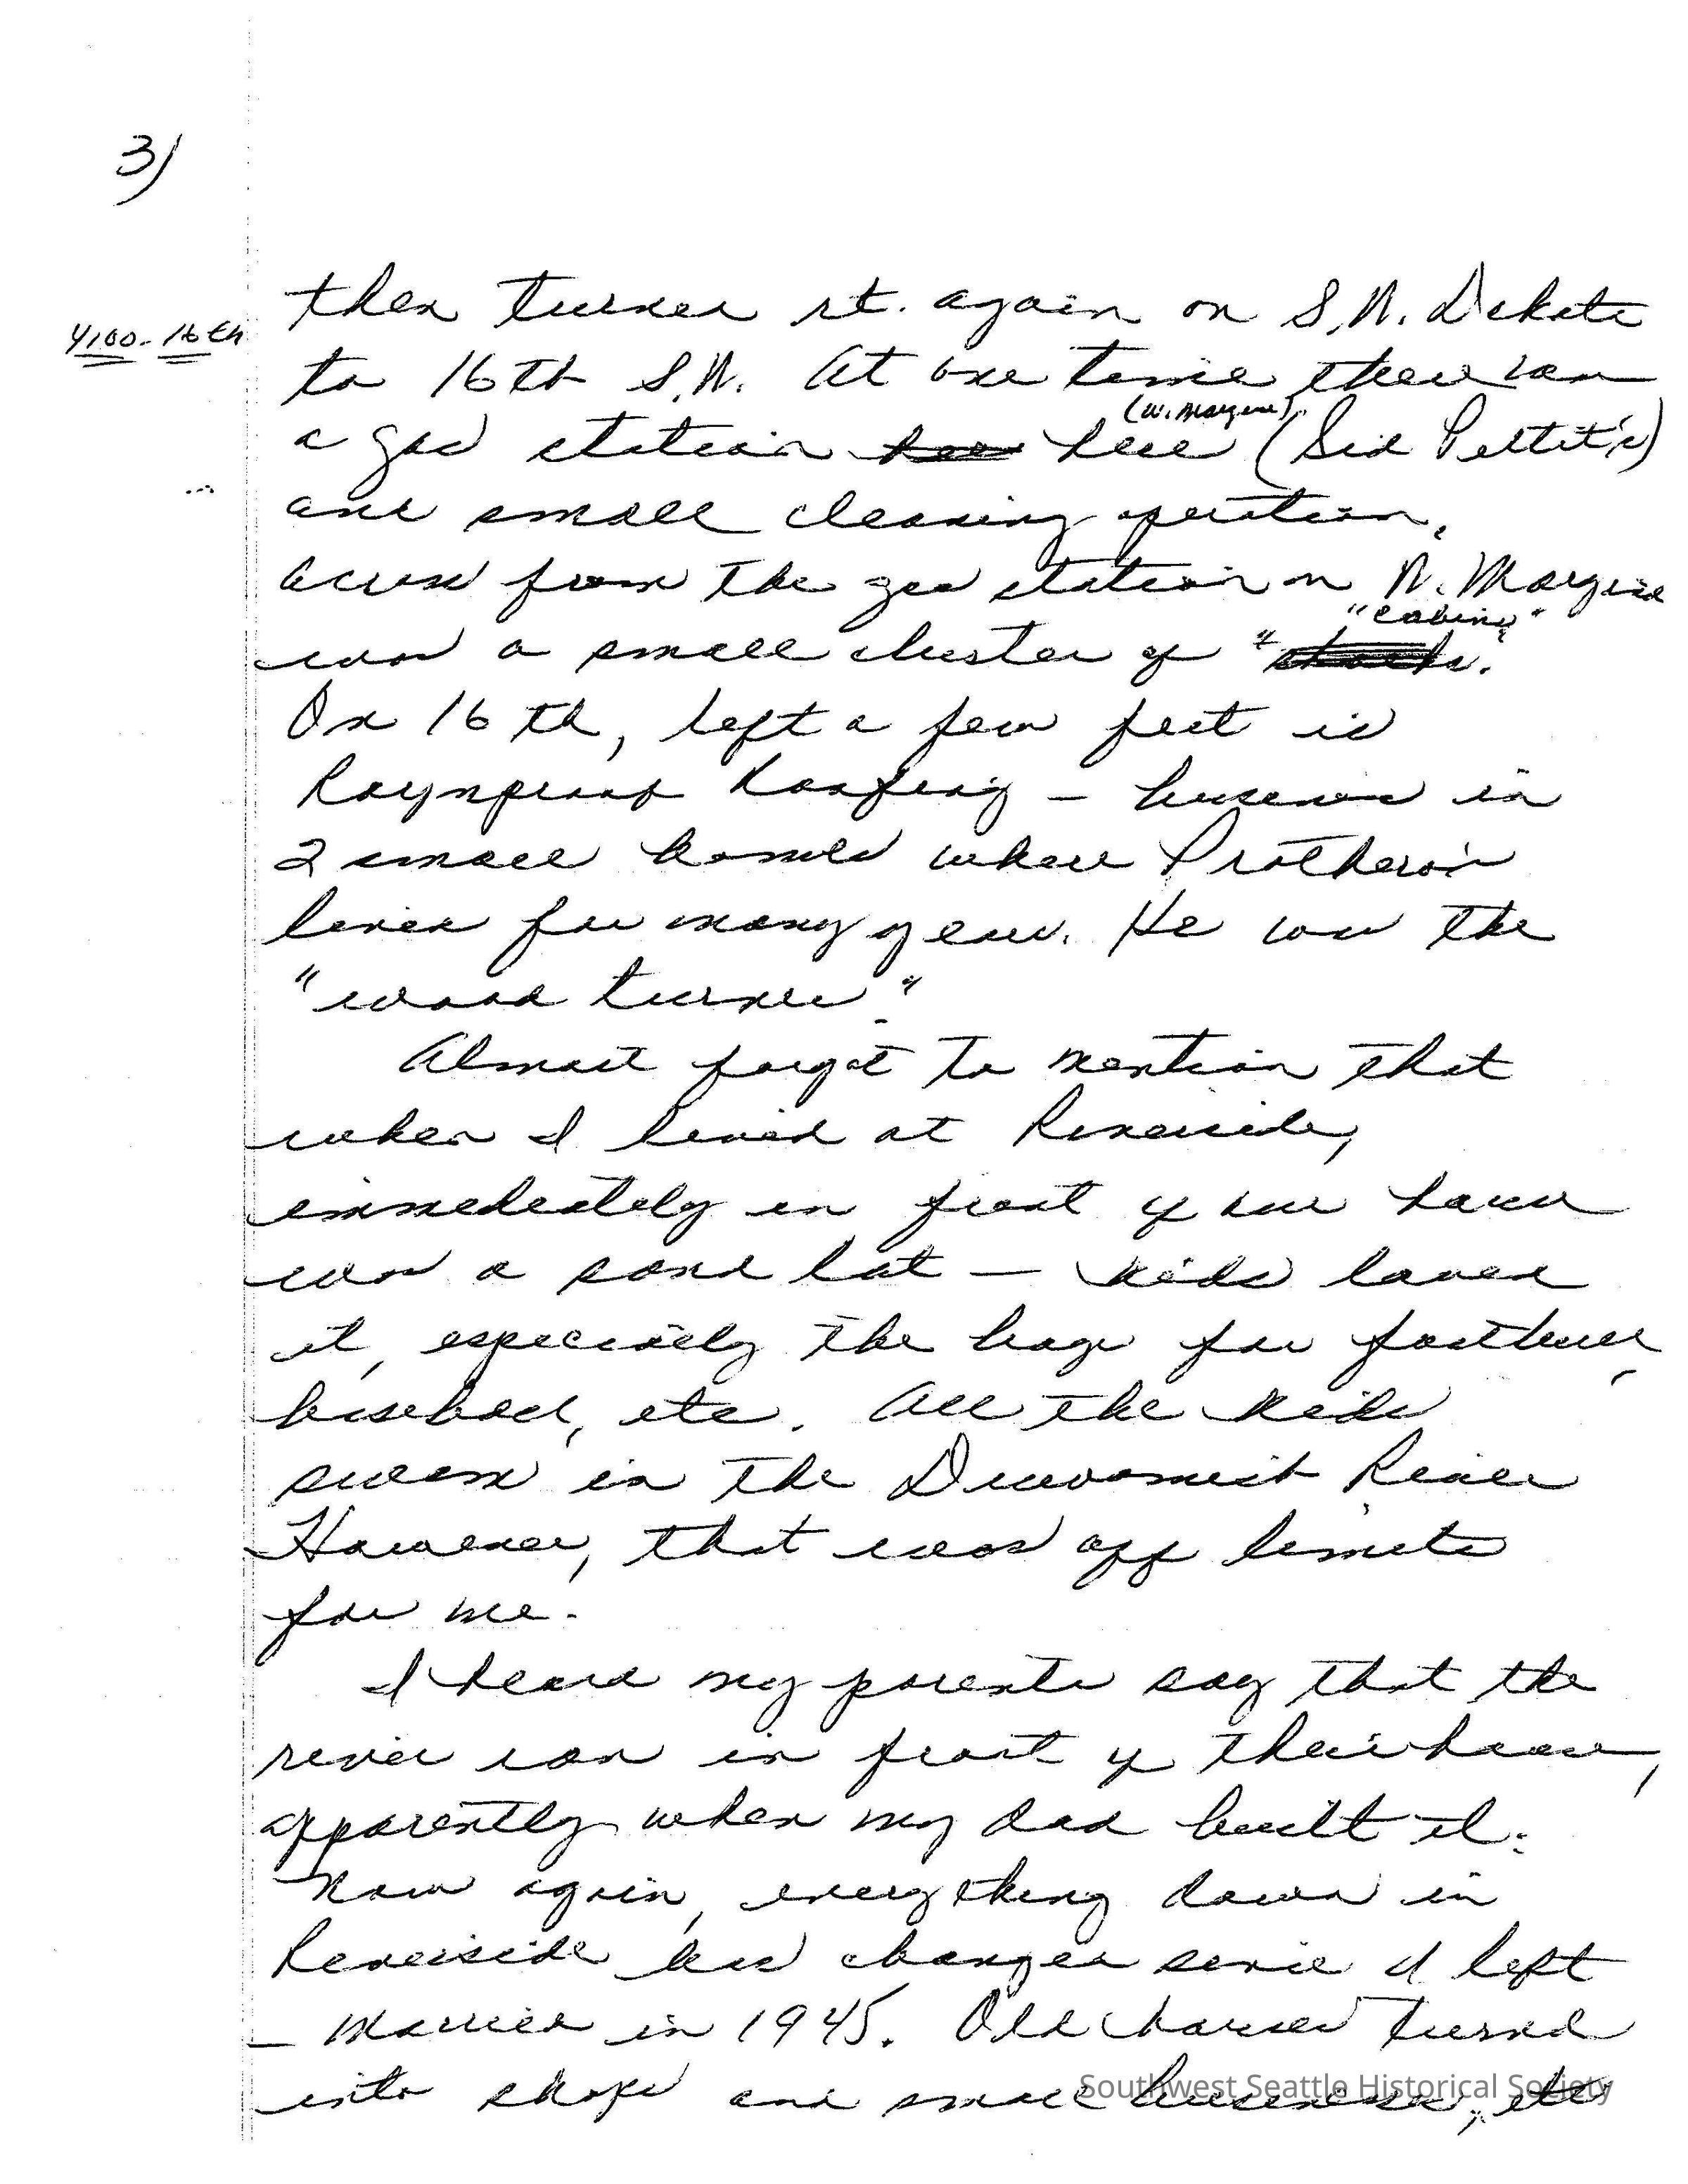 3)
then turned rt. again on S.W. Dakota
4100-16th
to 16th S.W. At one time there was
(W. Margine)
a gas station here (Sid Pettit's)
and small cleaning operation,
across from the gas station on W. Margine
"cabins"
was a small cluster of "shacks.
On 16th, left a few feet is
Raynproof Roofing - business in
2 small homes where Protheroi
lived for many years. He was the
"wood turner."
Almost forgot to mention that
when I lived at Riverside,
immediately in front of our house
was a sand lot - kids loved
it, especially the boys for football,
baseball, etc. All the kids
swam in the Duwamish River
However, that was off limits
for me.
I heard my parents say that the
river ran in front of their house,
apparently when my dad built it.
Now again, everything down in
Riverside has changed since I left
- married in 1945. Old houses turned
into shops and small businesses, etc
Southwest Seattle Historical Society